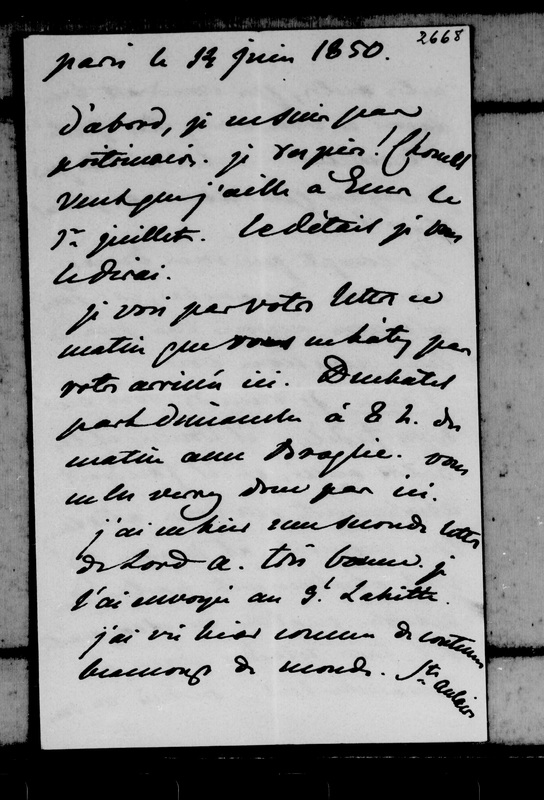 2668
paris le 12 juin 1850.
d'abord, je ne suis pas
poitrinaire. je respire! Chomel
veut que j'aille à Ems le
1er juillet. le détail je vous
le dirai.
je vois par votre lettre ce
matin que vous ne hâtez pas
votre arrivée ici. Duchatel
part dimanche à 8 h. du
matin avec Broglie. vous
ne les verrez donc pas ici.
j'ai eu hier une seconde lettre
de Lord A. très bonne. je
l'ai envoyée au gl Lahitte.
j'ai vu hier comme de coutume
beaucoup de monde. Ste
aulaire